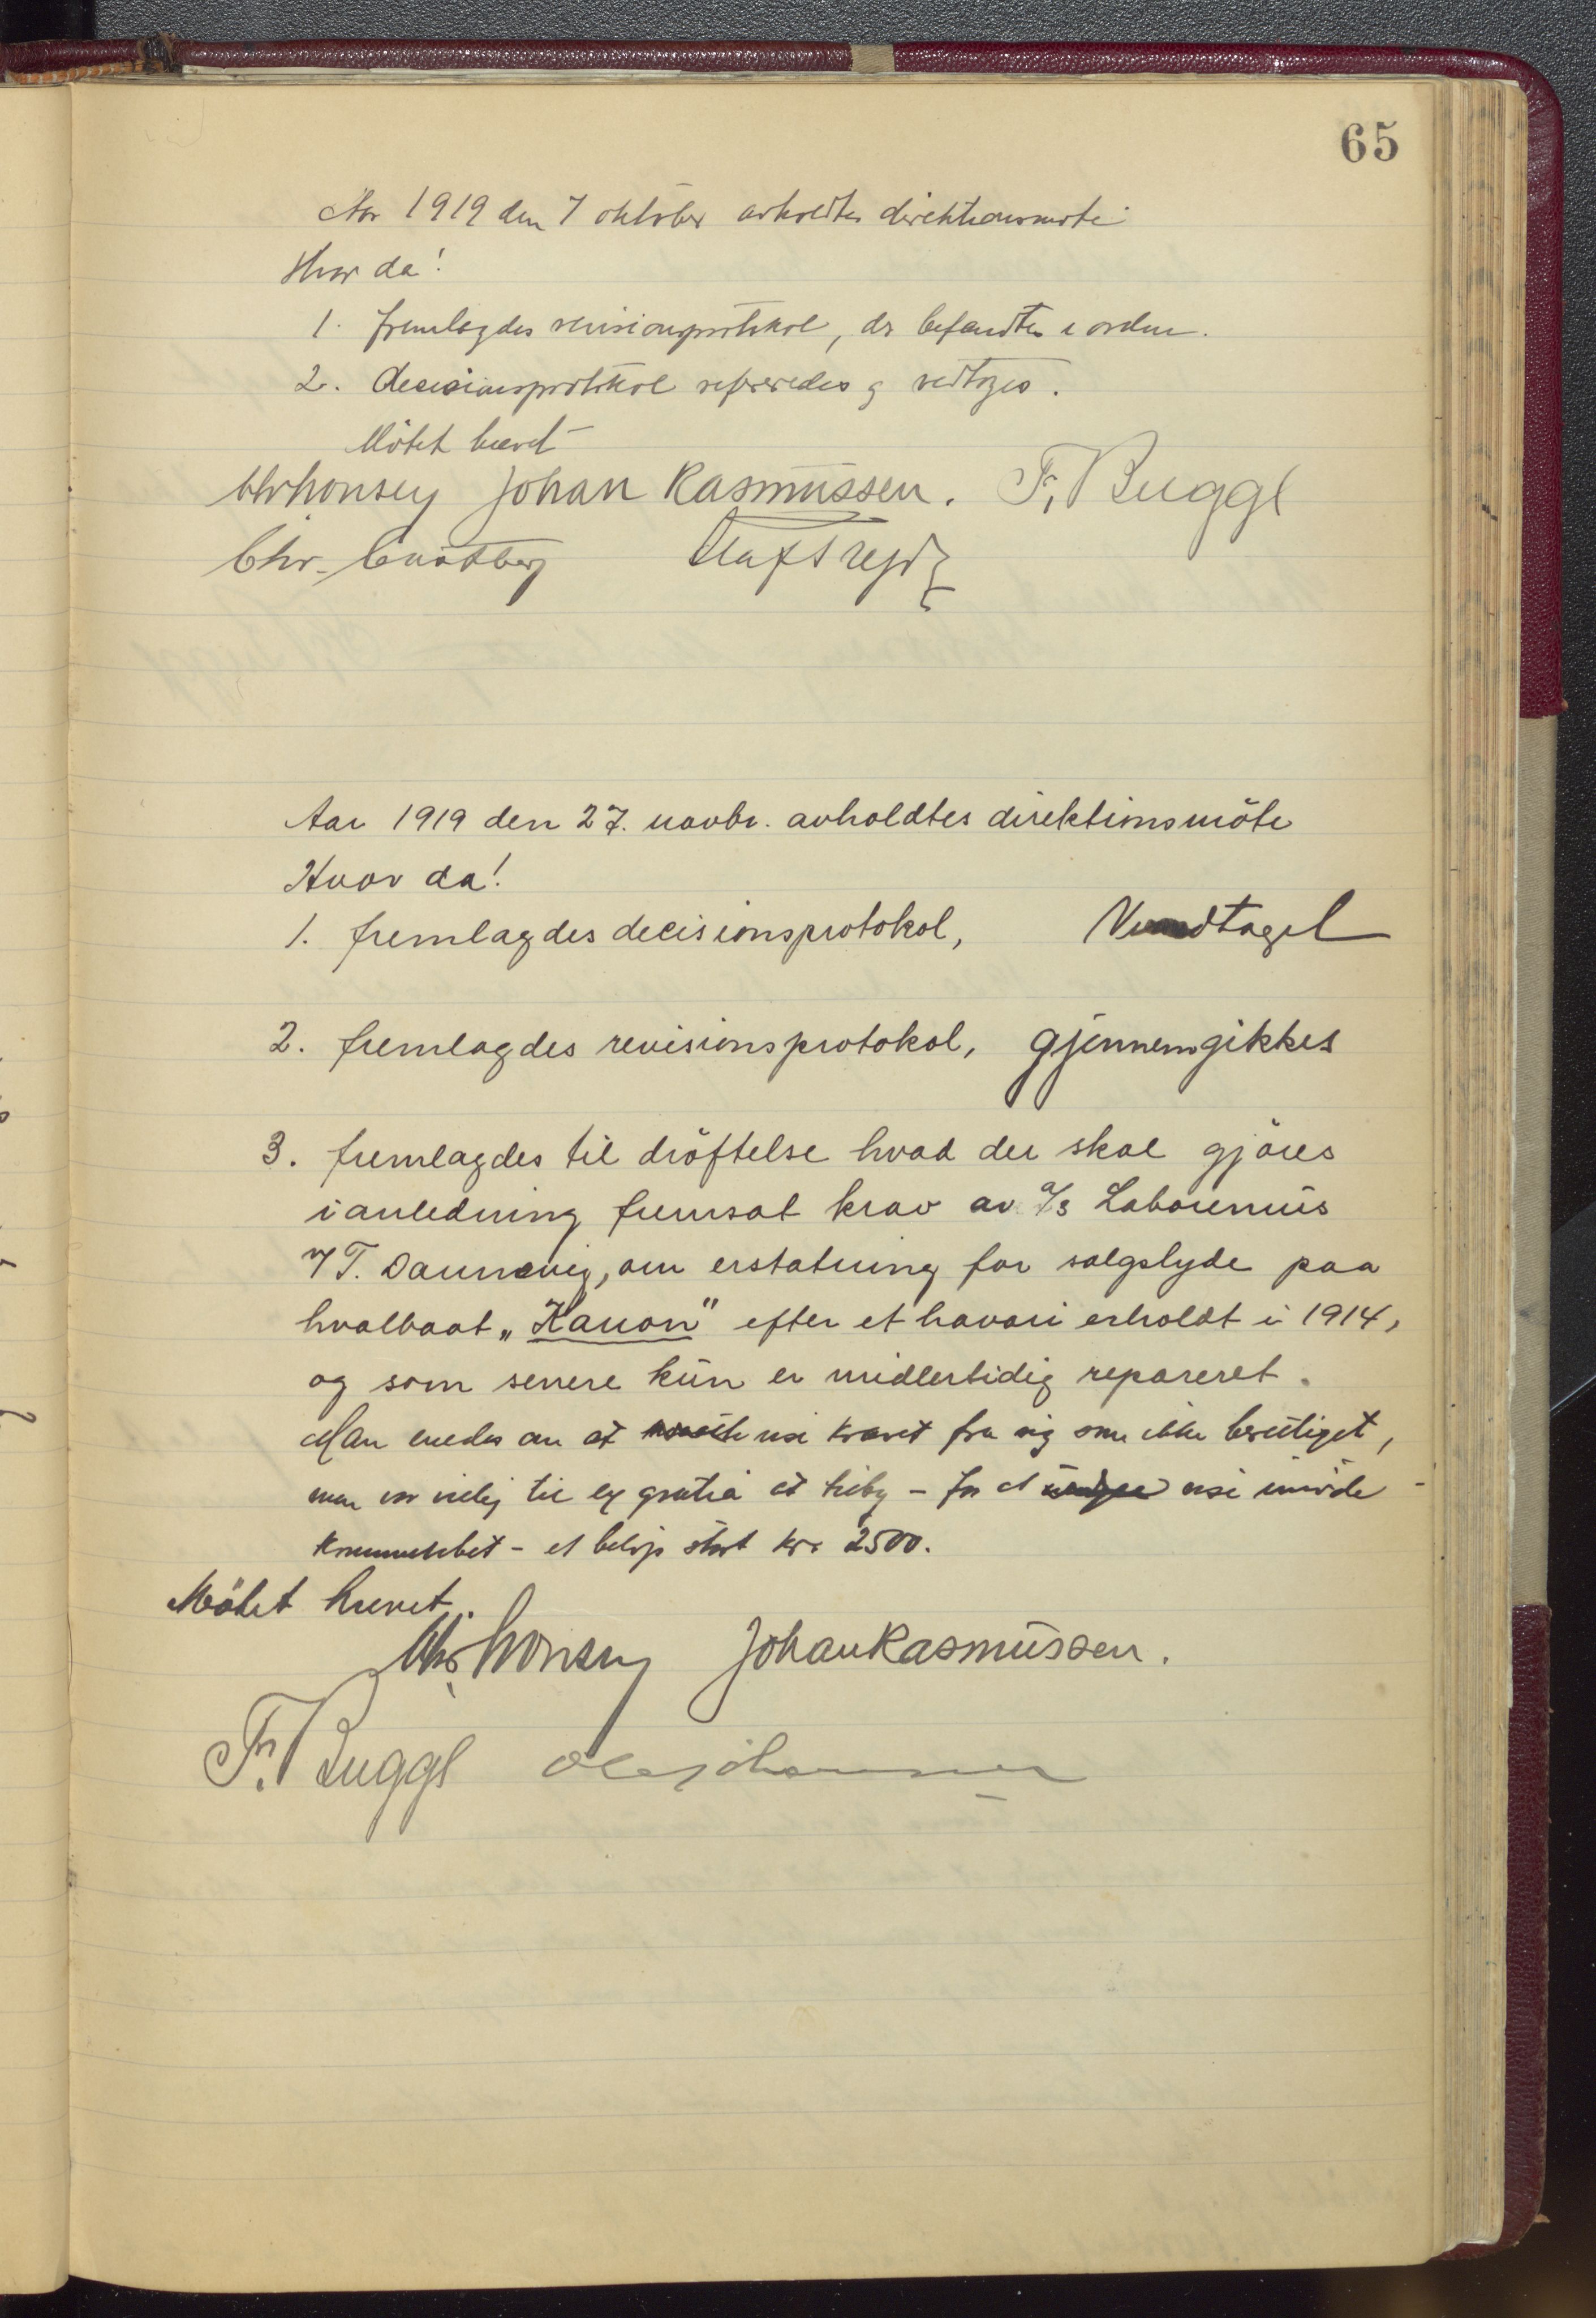 65
Aar 1919 den 7 oktober avholdtes direktionsmöte
Hvor da!
1. fremlagdes revisionsprotokol, der befandtes i orden.
2. decisionsprotokol refereredes og vedtoges.
Mötet hævet
Johan Rasmussen. F. Bugge
Chr.
Aar 1919 den 27. novbr. avholdtes direktionsmöte
Hvor da!
1. fremlagdes decisionsprotokol, Vedtaget
2. fremlagdes revisionsprotokol, gjennemgikkes
3. fremlagdes til dröftelse hvad der skal gjöres
i anledning fremsat krav av a/s Laboremus
v/ T. Dannevig, om erstatning for salgslyde paa
hvalbaat „Kanon" efter et havari erholdt i 1914,
og som senere kun er midlertidig repareret.
Man enedes om at vise kravet fra sig som ikke berettiget,
men var villig til ex gratia at tilby - for at vise imöde
kommenhet - et belöp stort kr. 2500.
Mötet hævet.
Johan Rasmussen.
F. Bugge